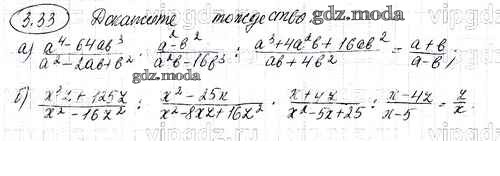 3.33 Докажите тождество. gdz.moda
а) (a⁴-64ab³)/(a²-2ab+b²) · (a²-b²)/(a²b-16b³) : (a³+4a²b+16ab²)/(ab+4b²) = (a+b)/(a-b);
б) (x³z+125z)/(x²-16z²) : (x²-25x)/(x²-8xz+16z²) · (x+4z)/(x²-5x+25) : (x-4z)/(x-5) = z/x.
gdz.moda